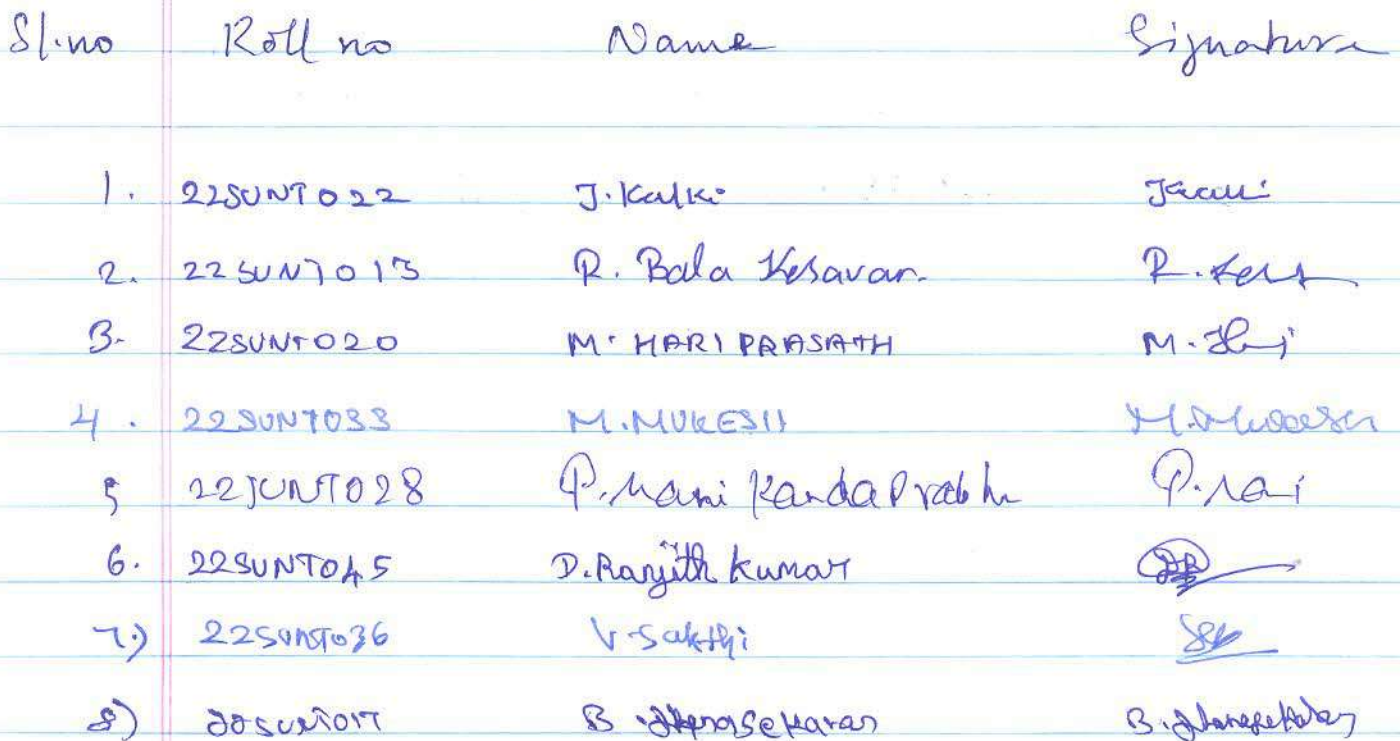 Sl.no Roll no Name Signature
1. 22SUNT022 J. Kalki
2. 22SUNT013 R. Bala Kesavan. R. Kes
3. 22SUNT020 M. HARI PRASATH M. Hari
4. 22SUNT033 M. MUKESH M. Mukesh
5 22SUNT028 P. Mani Kanda Prabhu P. Mani
6. 22SUNT045 D. Ranjith Kumar
7.) 22SUNT036 V. Sakthi
8) 22SUNT017 B.